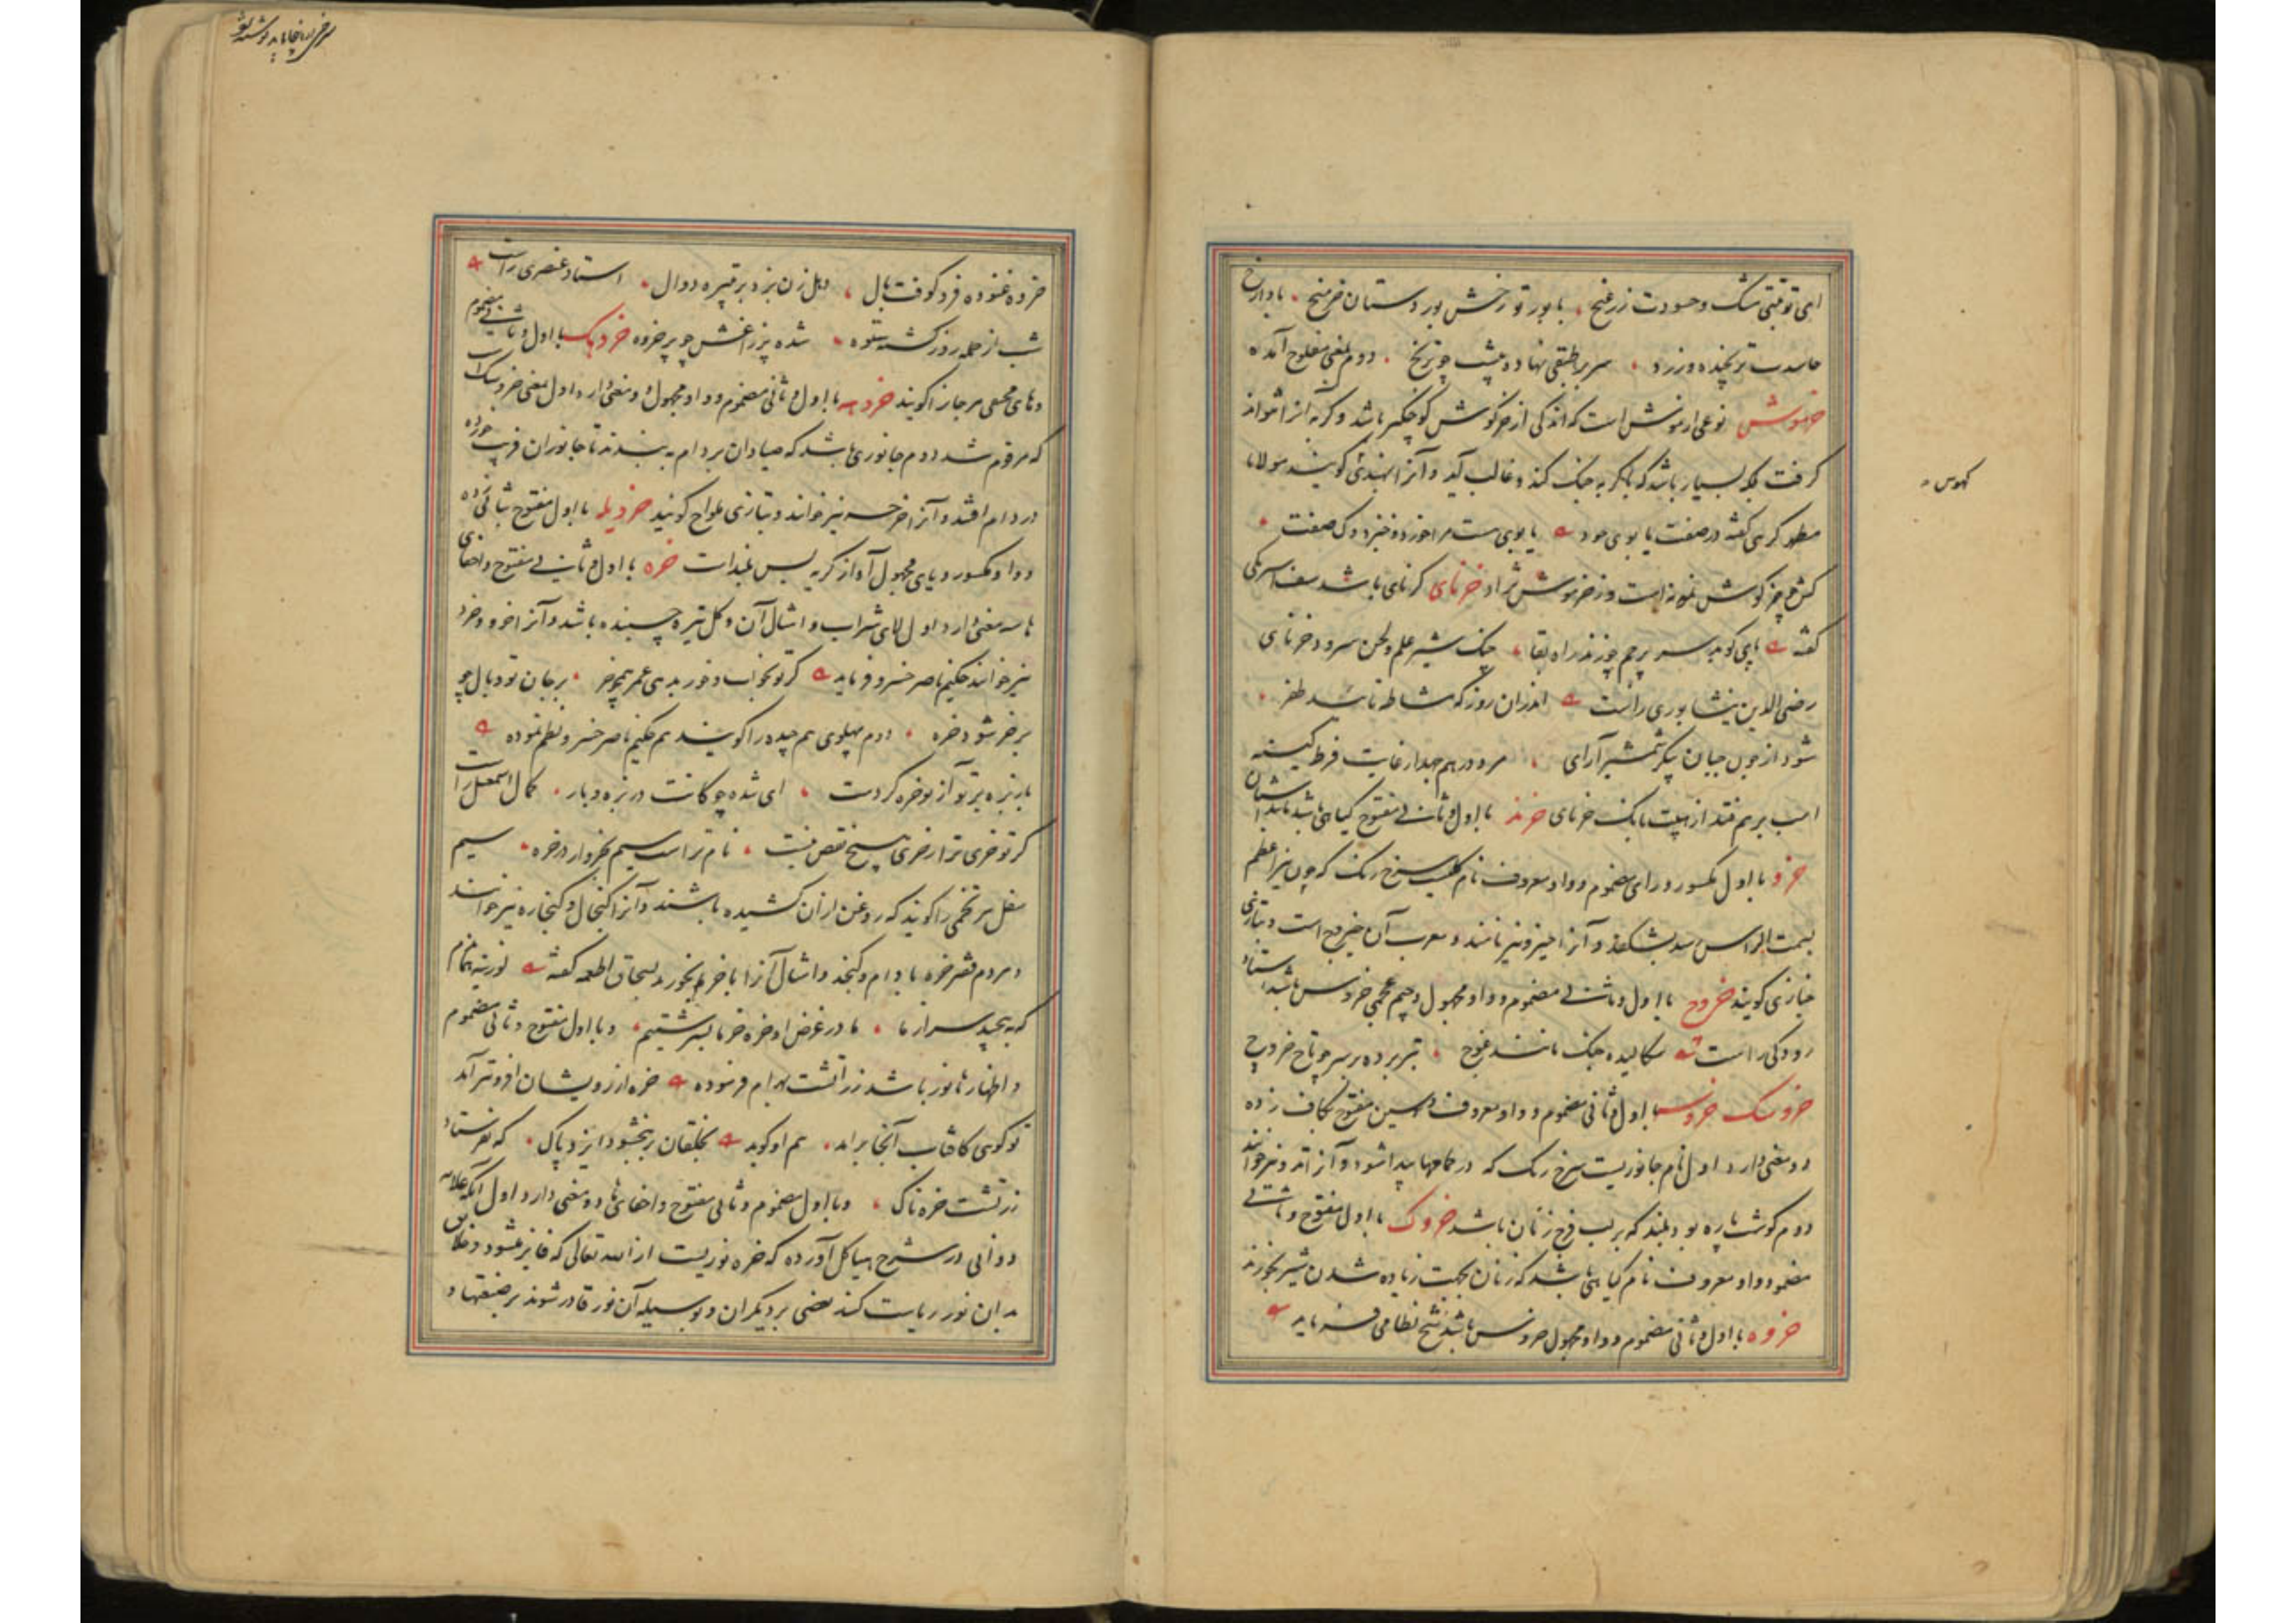 حاسدت ترنجیده و زرد سر بر طبقی نهاده پیشت چو ترنج دوم بمعنی مفلوج آمده
خرموش نوعی از موش است که اندکی از خرگوش کوچکتر باشد و گربه آنرا نتواند
گرفت بلکه بسیار باشد که با گربه جنگ کند و غالب آید و آنرا بهندی گویند مولانا
کهوس
مطهر کرهی گفته در صفت یابوی خود یابوی ست مرا خوردو
خرنای کرنای باشد سیف اسفرنگی
گفته پای کوبد سر پرچم چو زند راه بقا چنگ شیر علم و لحن سرود خرنای
رضی الدین نیشابوری راست اندران روز که مشاطه باشد ظفر
شود از خون جبان پیکر شمشیر آرای مرد درهم جهد از غایت فرط کینه
اسب برهم فتد از هیبت بانگ خرنای خرند با اول و ثانی مفتوح گیاهی باشد مانند اشنان
خرو با اول مکسور و رای مضموم و واو معروف نام گلیست سرخ رنگ که چون نیر اعظم
بسمت الراس رسد بشکفد و آنرا خیرو نیز نامند و معرب آن خیروج است و بتازی
خبازی گویند خروچ با اول و ثانی مضموم و واو مجهول و جیم عجمی خروس باشد استاد
رودکی راست سکالیده جنگ مانند غوچ تبر برده بر سر چو تاج خروچ
خروسک با اول و ثانی مضموم و واو معروف و سین مفتوح بکاف زده
دو معنی دارد اول نام جانوریست سرخ رنگ که در حمامها پیدا شود و آنرا نیز خوانند
دوم گوشت پاره بود بلند که بر لب فرج زنان باشد خروک با اول مفتوح و ثانی
مضموم و واو معروف نام گیاهی باشد که زنان بجهت زیاده شدن شیر بخورند
خروه با اول و ثانی مضموم و واو مجهول خروس باشد شیخ نظامی فرماید
خروه غنوده فرو کوفت بال دهل زن بزد بر تبیره دوال استاد عنصری راست
شب از حمله روز گشته ستوه شده پر زاغش چو پر خروه خروهک با اول و ثانی مضموم
و های مخفی مرجان را گویند خروهه با اول و ثانی مضموم و واو مجهول دو معنی دارد اول بمعنی خروسک است
که مرقوم شد دوم جانوری باشد که صیادان بر دام به بندند تا جانوران فریب خورده
در دام افتند و آنرا خرخسه نیز خوانند و بتازی ملواح گویند خرویله با اول مفتوح بثانی زده
و واو مکسور و یای مجهول آواز گریه بس بلند است خره با اول و ثانی مفتوح و اخفای
ها سه معنی دارد اول لای شراب و امثال آن و گل تیره چسبنده باشد و آنرا خر و خرد
نیز خوانند حکیم ناصر خسرو فرماید گر تو بخواب و خور بدهی عمر همچو خر بر جان تو وبال چو
بر خر شود خره دوم پهلوی هم چیده را گویند هم حکیم ناصر خسرو نظم نموده
بار بزه بر تو آز تو خره کردست ای شده چوگانت در بزه و بار کمال اسمعیل راست
گر تو خری ترا ز خری هیچ نقص نیست نام ترا ست سیم بخروار در خره سیم
ثفل هر تخمی را گویند که روغن از آن کشیده باشند و آنرا کنجال و کنجاره نیز خوانند
و مردم قشر خره بادام و کنجد و امثال آنرا با خرما بخورند بسحاق اطعمه گفته لوزینه تمام
که به پیچید سر از ما ما در عوض او خره خرما بسرشتیم و با اول مفتوح و ثانی مضموم
و اظهار ها نور باشد زراتشت بهرام فرموده خره از رویشان افزونتر آمد
تو گوئی کافتاب آنجا براند هم او گوید بخلقان ببخشود ایزد پاک که بفرستاد
زرتشت خره ناک و با اول مضموم و ثانی مفتوح و اخفای ها دو معنی دارد اول آنکه علامه
دوانی در شرح هیاکل آورده که خره نوریست از الله تعالی که فایز میشود و خلایق
بدان نور ریاست کنند بعضی بر دیگران و بوسیله آن نور قادر شوند بر صنعتها و